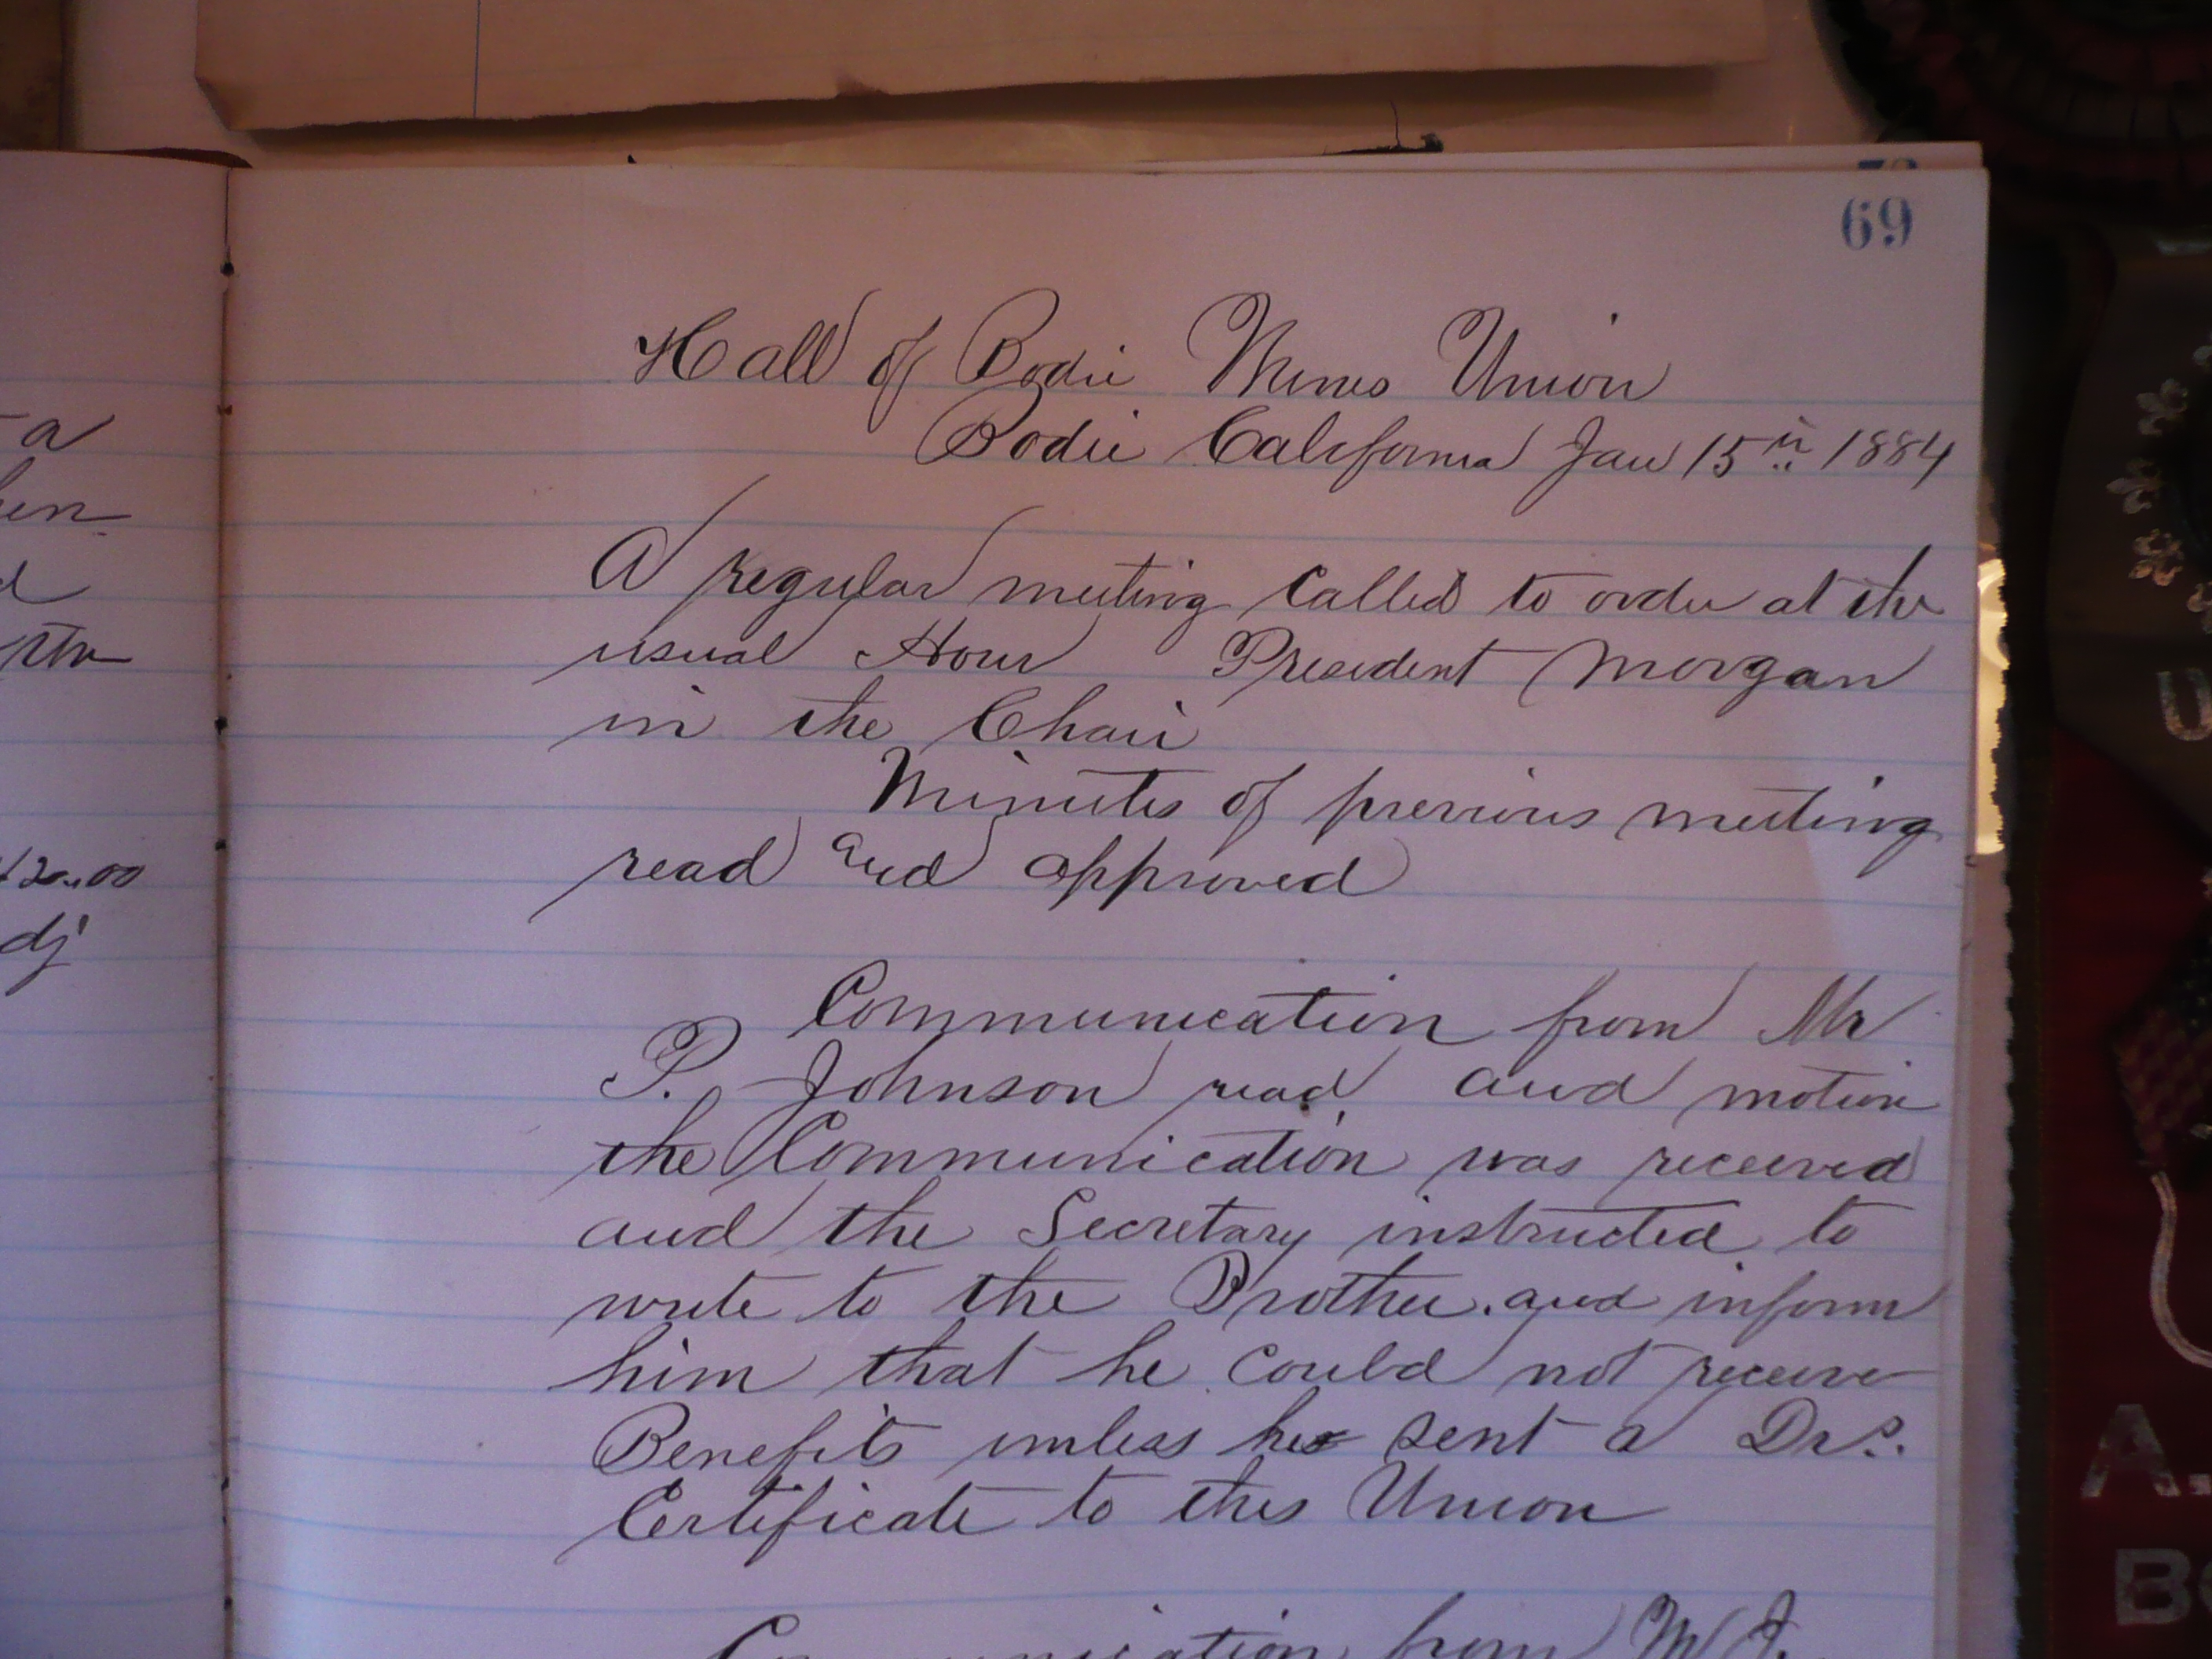 69
Hall of Bodie Miners Union
Bodie California Jan 15th 1884
A regular meeting Called to order at the
usual Hour President Morgan
in the Chair
Minutes of previous meeting
read and approved
Communication from Mr
P. Johnson read and motion
the Communication was received
and the Secretary instructed to
write to the Brother. and inform
him that he Could not receive
Benefits unless he sent a Drs.
Certificate to this Union
Communication from M J.
a
d
$20.00
dj
U
A.